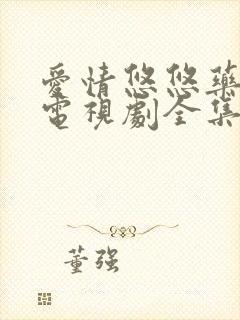 愛情悠悠藥
電視劇全集
董强